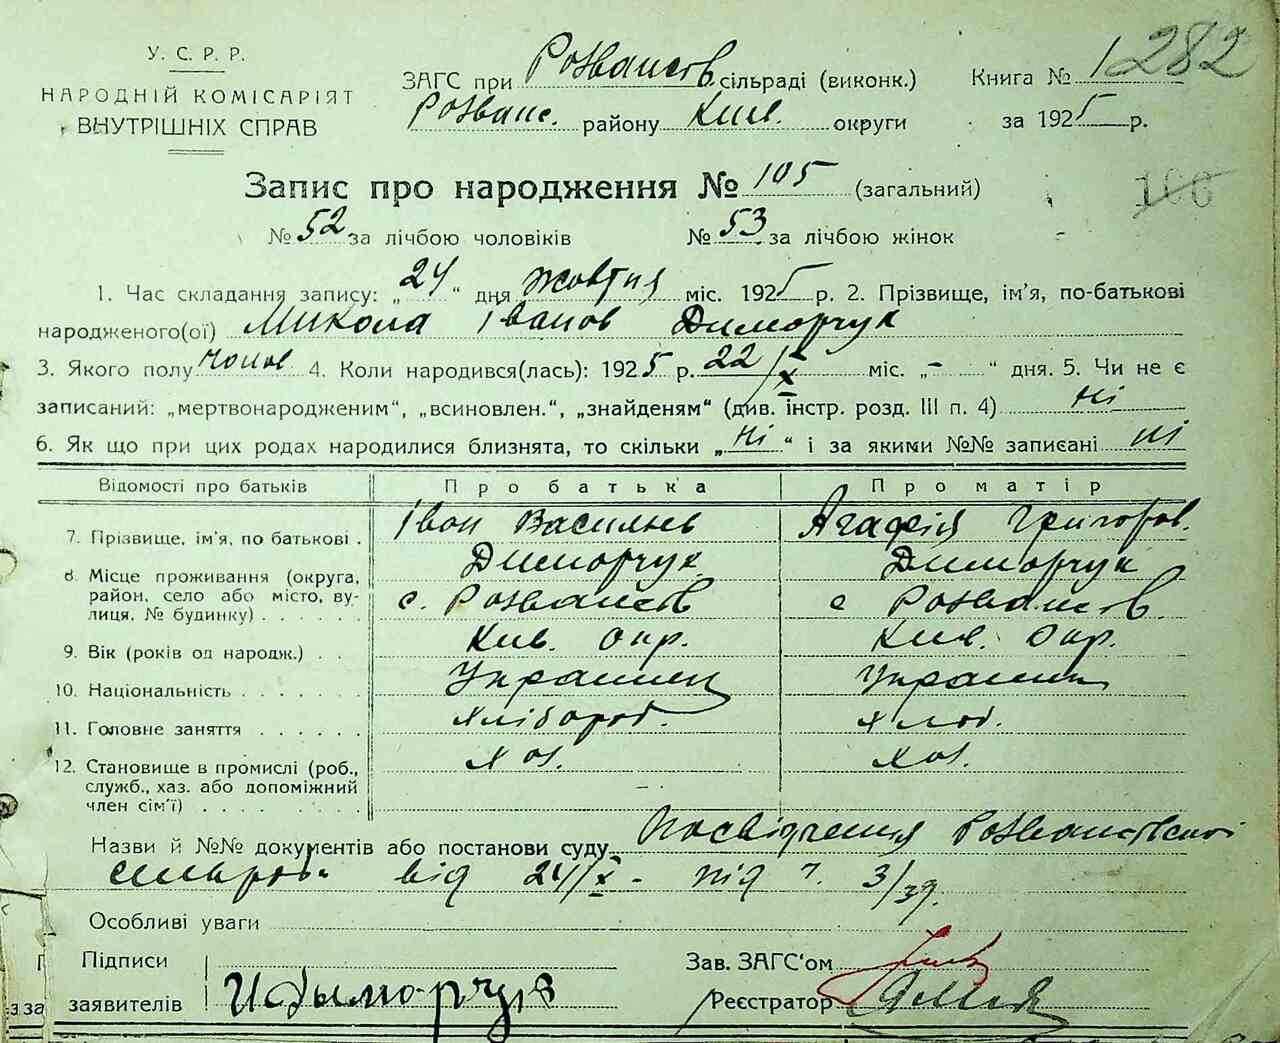 У. С. Р. Р.
НАРОДНІЙ КОМІСАРІЯТ
ВНУТРІШНІХ СПРАВ
ЗАГС при Розважев. сільраді (виконк.) Книга № 1 282
Розваж. району Київ. округи за 1925 р.
Запис про народження № 105 (загальний)
106
№ 52 за лічбою чоловіків № 53 за лічбою жінок
1. Час складання запису: „24“ дня жовтня міс. 1925 р. 2. Прізвище, ім'я, по-батькові
народженого(ої) Микола Іванов Диморчук
3. Якого полу чолов 4. Коли народився(лась): 1925 р. 22/X міс. „-“ дня. 5. Чи не є
записаний: „мертвонародженим“, „всиновлен.“, „знайденям“ (див. інстр. розд. III п. 4) Ні
6. Як що при цих родах народилися близнята, то скільки „Ні“ і за якими №№ записані ні
Відомості про батьків Про батька Про матір
7. Прізвище, ім'я, по батькові . Іван Васильев Агафія Григоров.
Диморчук Диморчук
8. Місце проживання (округа, район, село або місто, вулиця, № будинку) . . . . . . с. Розважев с Розважев.
Київ. окр. Київ. окр.
9. Вік (років од народж.) . .
10. Національність . . . . . . Українец Українк
11. Головне заняття . . . . . . Хлібороб. Хліб.
12. Становище в промислі (роб., служб., хаз. або допоміжний член сім'ї) . . . . . . . Хоз. Хоз.
Назви й №№ документів або постанови суду Посвідчення Розважевської
сільрови від 24/X - під ч. 3/39.
Особливі уваги
Підписи
заявителів И Дыморчув
Зав. ЗАГС'ом
Реєстратор